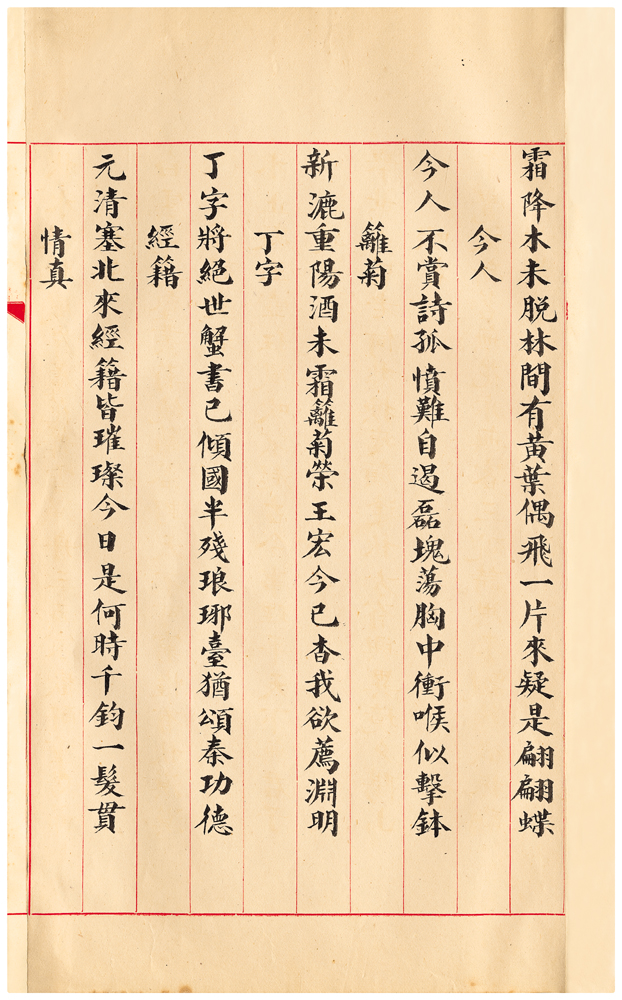 霜降木未脱林間有黃葉偶飛一片來疑是翩翩蝶
今人
今人不賞詩孤憤難自遏磊塊蕩胸中衝喉似擊鉢
籬菊
新漉重陽酒未霜籬菊榮王宏今已杳我欲薦淵明
丁字
丁字將絕世蟹書已傾國半殘琅琊臺猶頌秦功德
經籍
元清塞北來經籍皆璀璨今日是何時千鈞一髮貫
情真